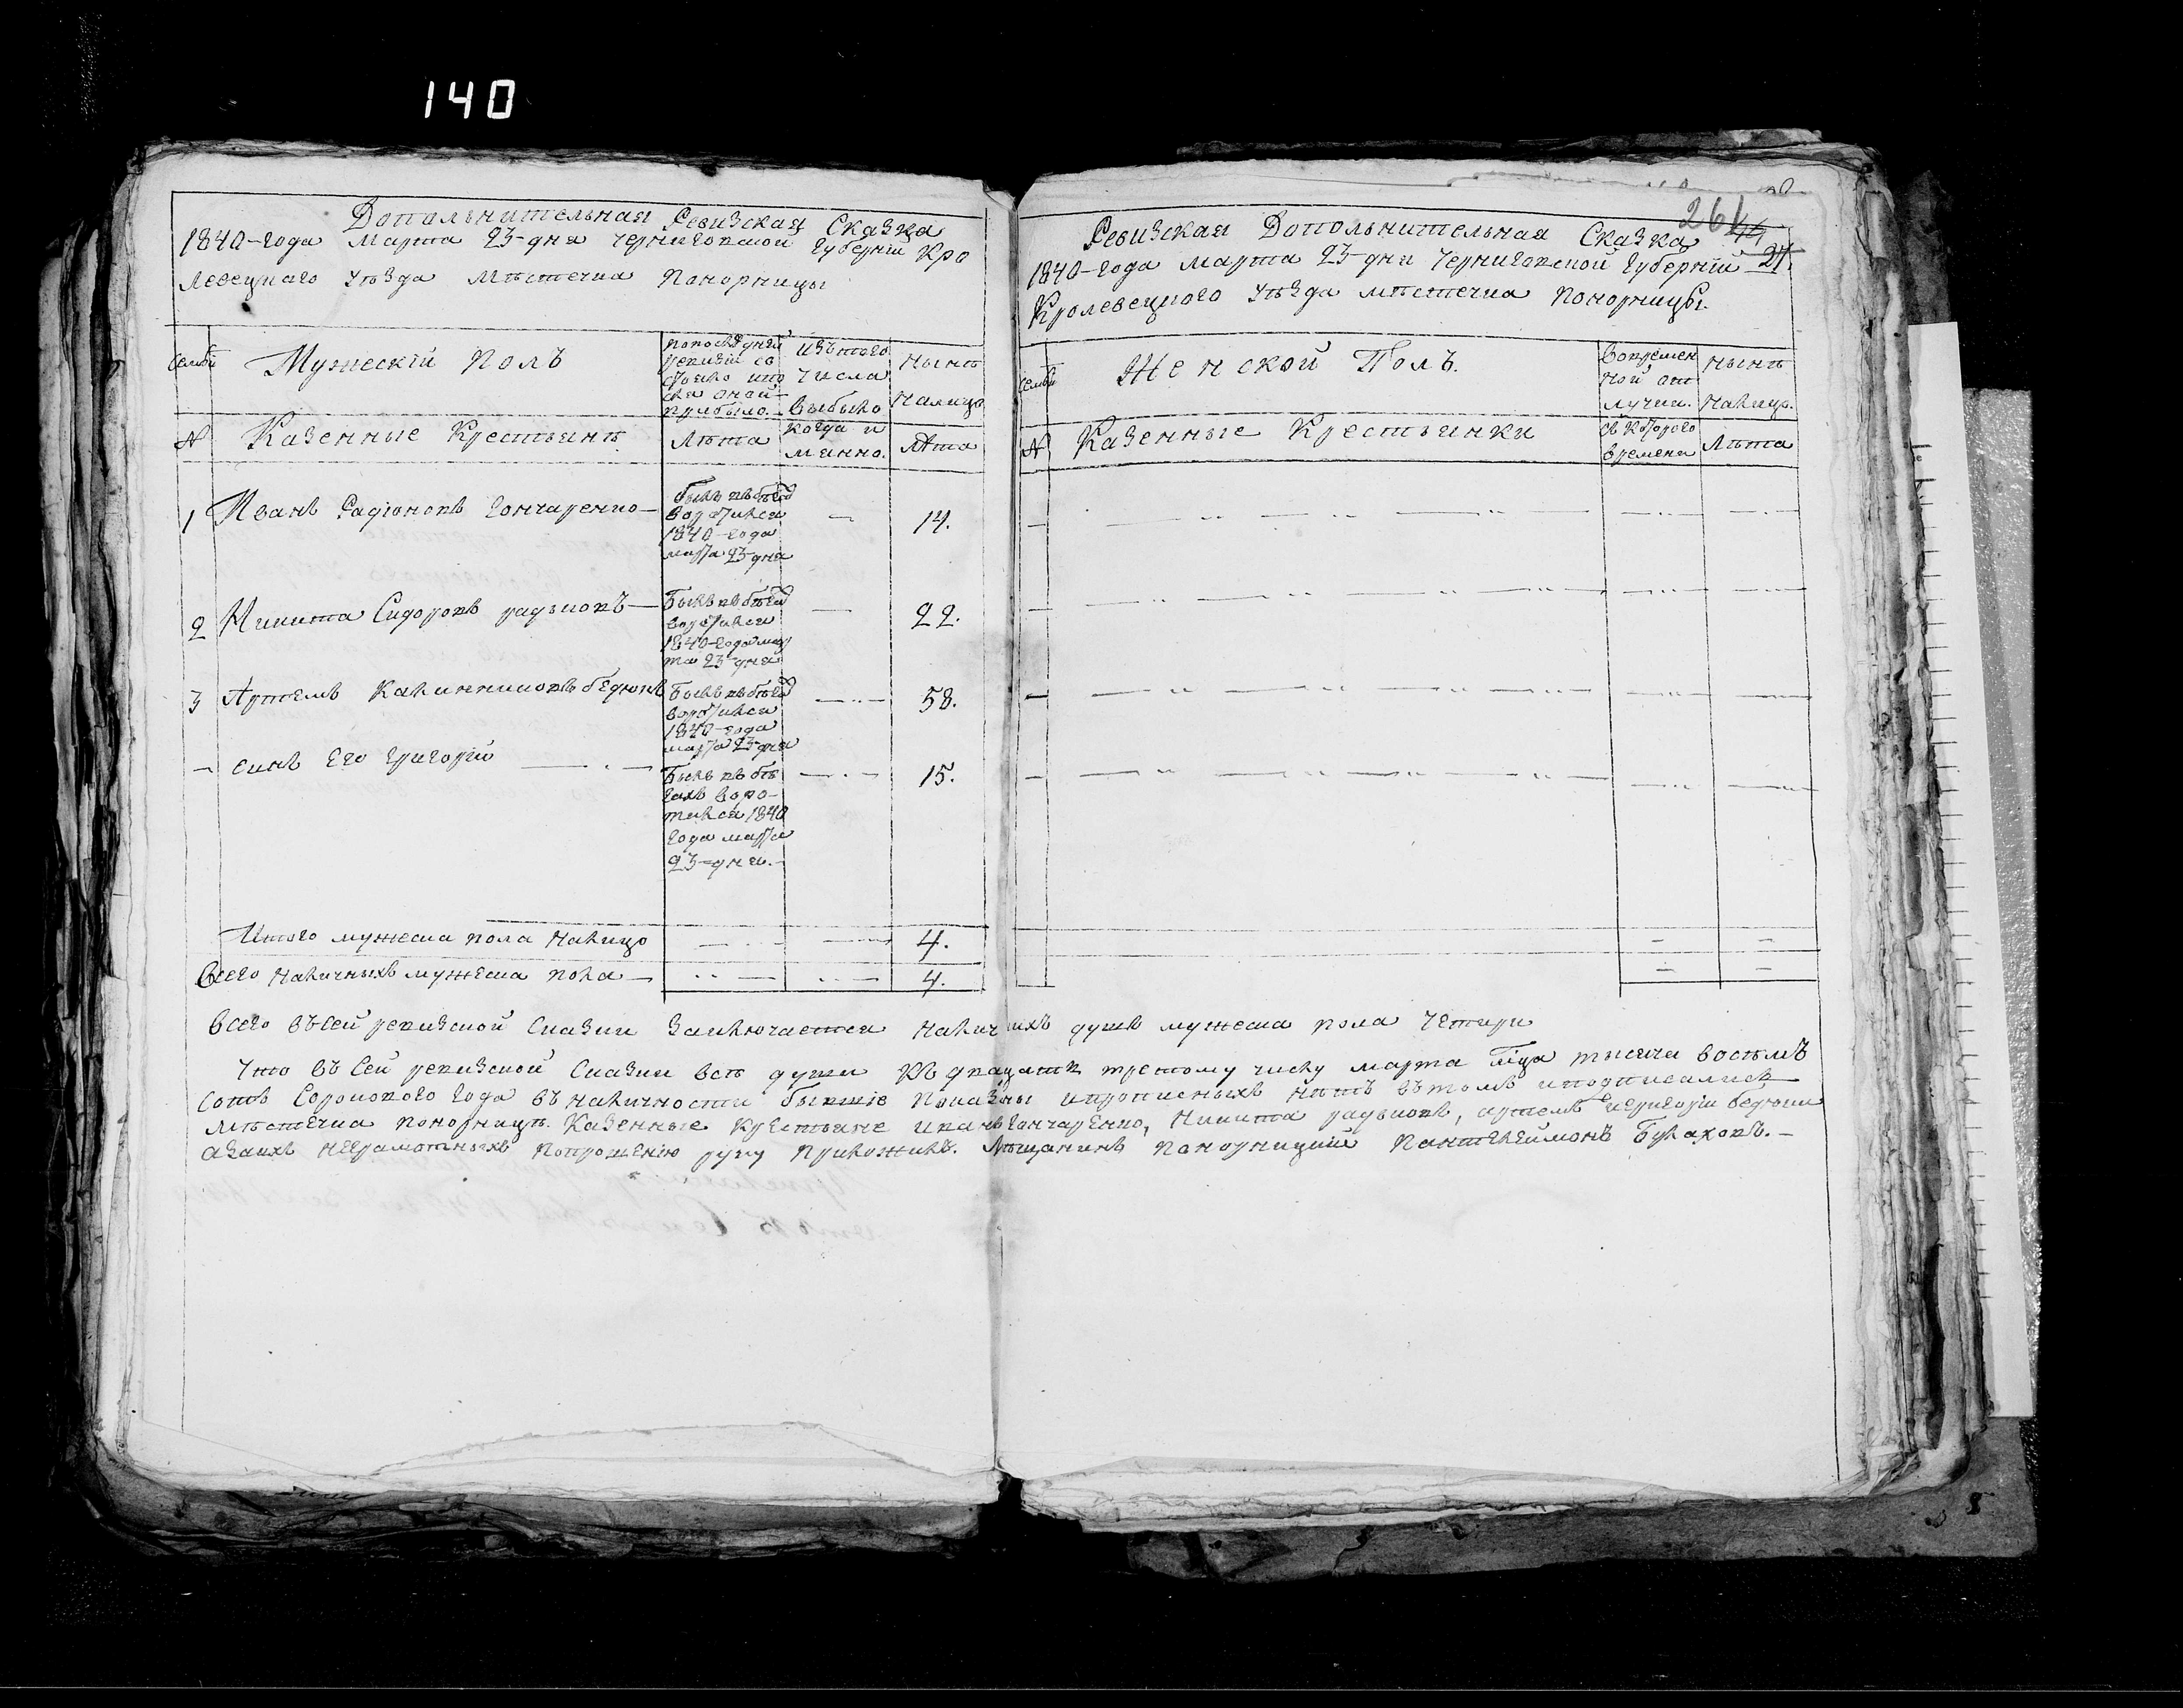 140
Дополънительная Ревизская Сказка
1840-года Марта 23-дня Черниговской Губернiи Кро
левецкаго Уѣзда Мѣстечка Понорницы
Семьи
Мужескiй Полъ
По последней ревизiи со
Изъ того Числа Выбыло
Нынѣ На лицо
прибыло.
№
Казенные Крестьянѣ
Лѣта
Когда и
Лѣта
1
Иванъ Радiоновъ Гончаренко —
Былъ въ бѣгахъ
воротился
1840-года
марта 23-дня
—
14.
2
Никита Сидоровъ радьковъ —
Былъ въ бѣгахъ
воротился
1840-года мар
та 23-дня
—
22.
3
Артемъ Калинниковъ бедюкъ
Былъ въ бѣгахъ
воротился
1840-года
марта 23-дня
58.
— синъ Его Григорiй
Былъ въ бѣ
гахъ воро-
тился 1840
года марта
23-дня.-
15.
Итого мужеска пола налицо
4.
Всего наличныхъ мужеска пола —
4.
264
44
27.
Ревизская Дополънительная Сказка
1840-года марта 23-дня Черниговской Губернiй
Кролевецкого Уѣзда мѣстечка Понорницы.
Семьи
Женской Полъ.
Вовремен
ной от
лучки.
Нынѣ
Налицо.
№
Казенные Крестьянки
Съ Которого
времени
Лѣта
Всего въ сей ревизской Сказки Заключается Наличнихъ душъ мужеска пола Четири
Что въ Сей ревизской Сказки всѣ души Къ двацатѣ третому числу марта мца тысяча восемъ
сотъ Сорокового Года въ наличности бывшiе показаны ипрописныхъ нѣтъ вътомъ иподписались
Мѣстечка понорницъ. Казенные Крестьяне иванъ Гончаренко, Никита радьковъ, артемъ игригорiй бедюки
азаихъ неграмотныхъ попрошенiю руку приложилъ. Мѣщанинъ Понорницкiй Пантелеймонъ Булаховъ.—